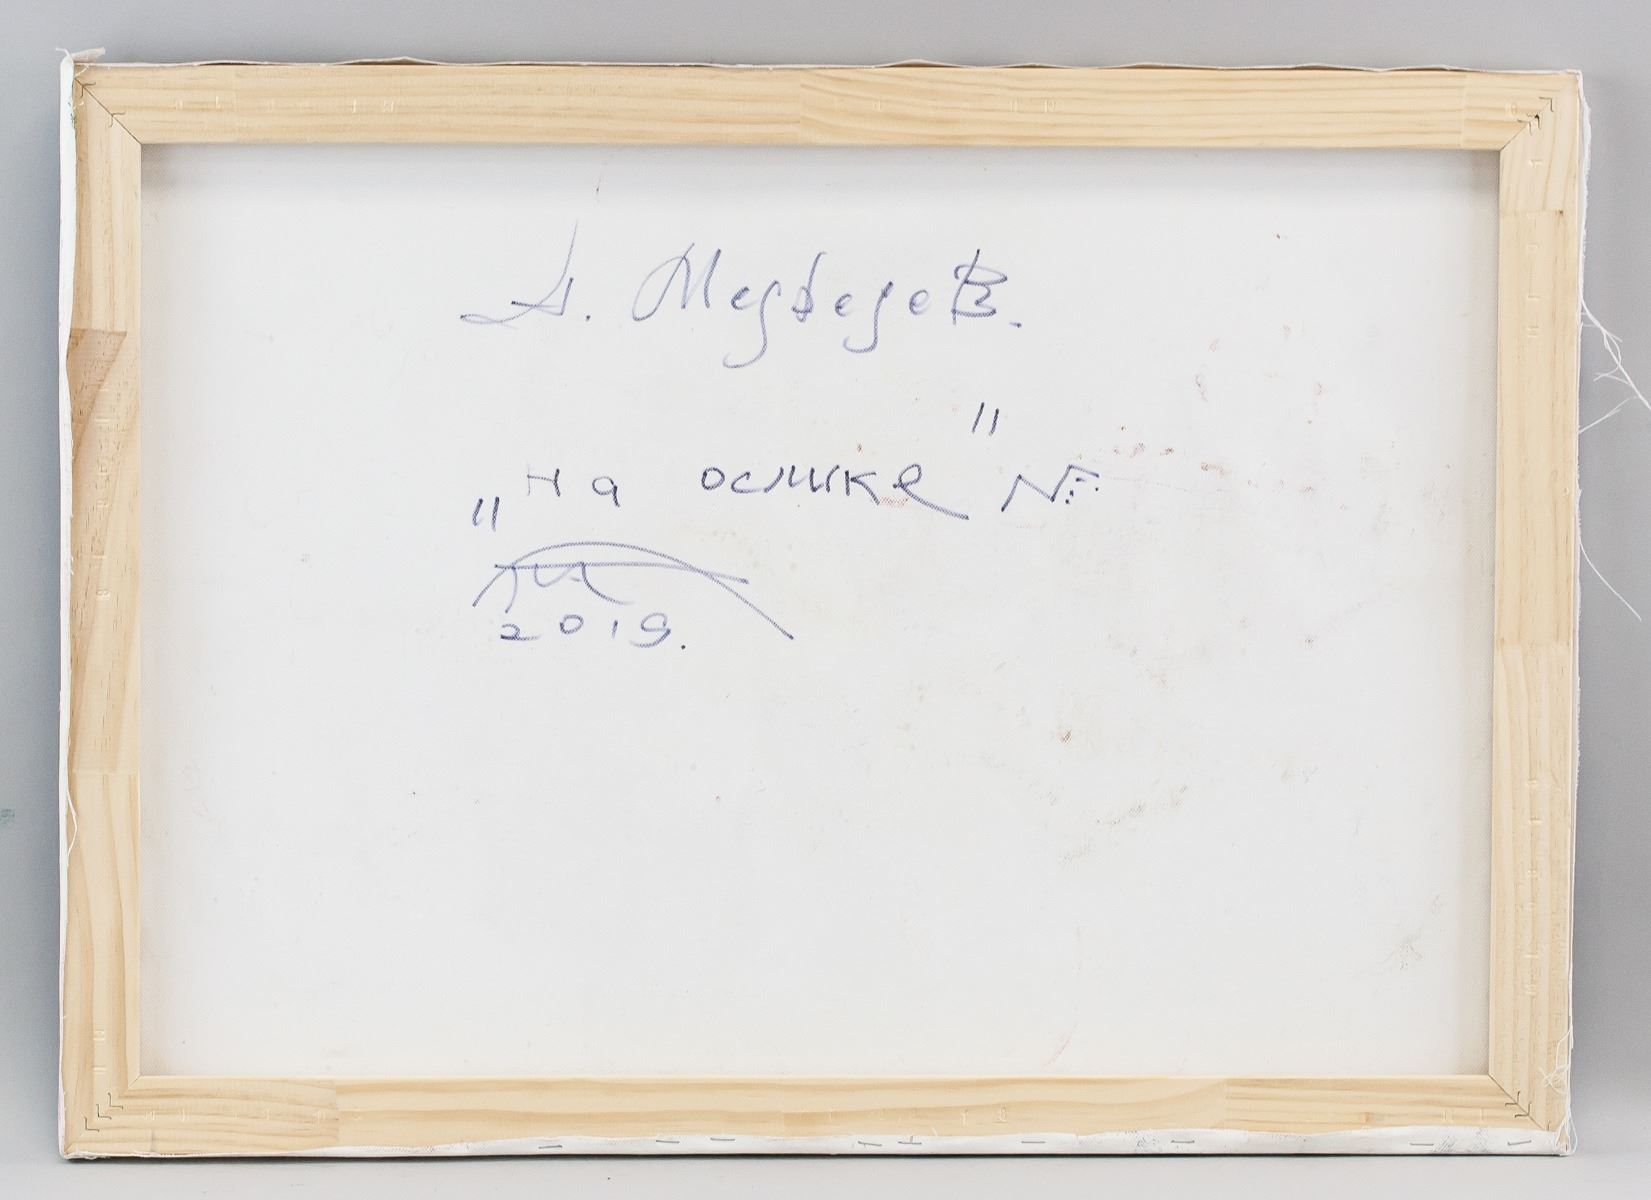 Д. Медведев.
„на ослике"
2019.